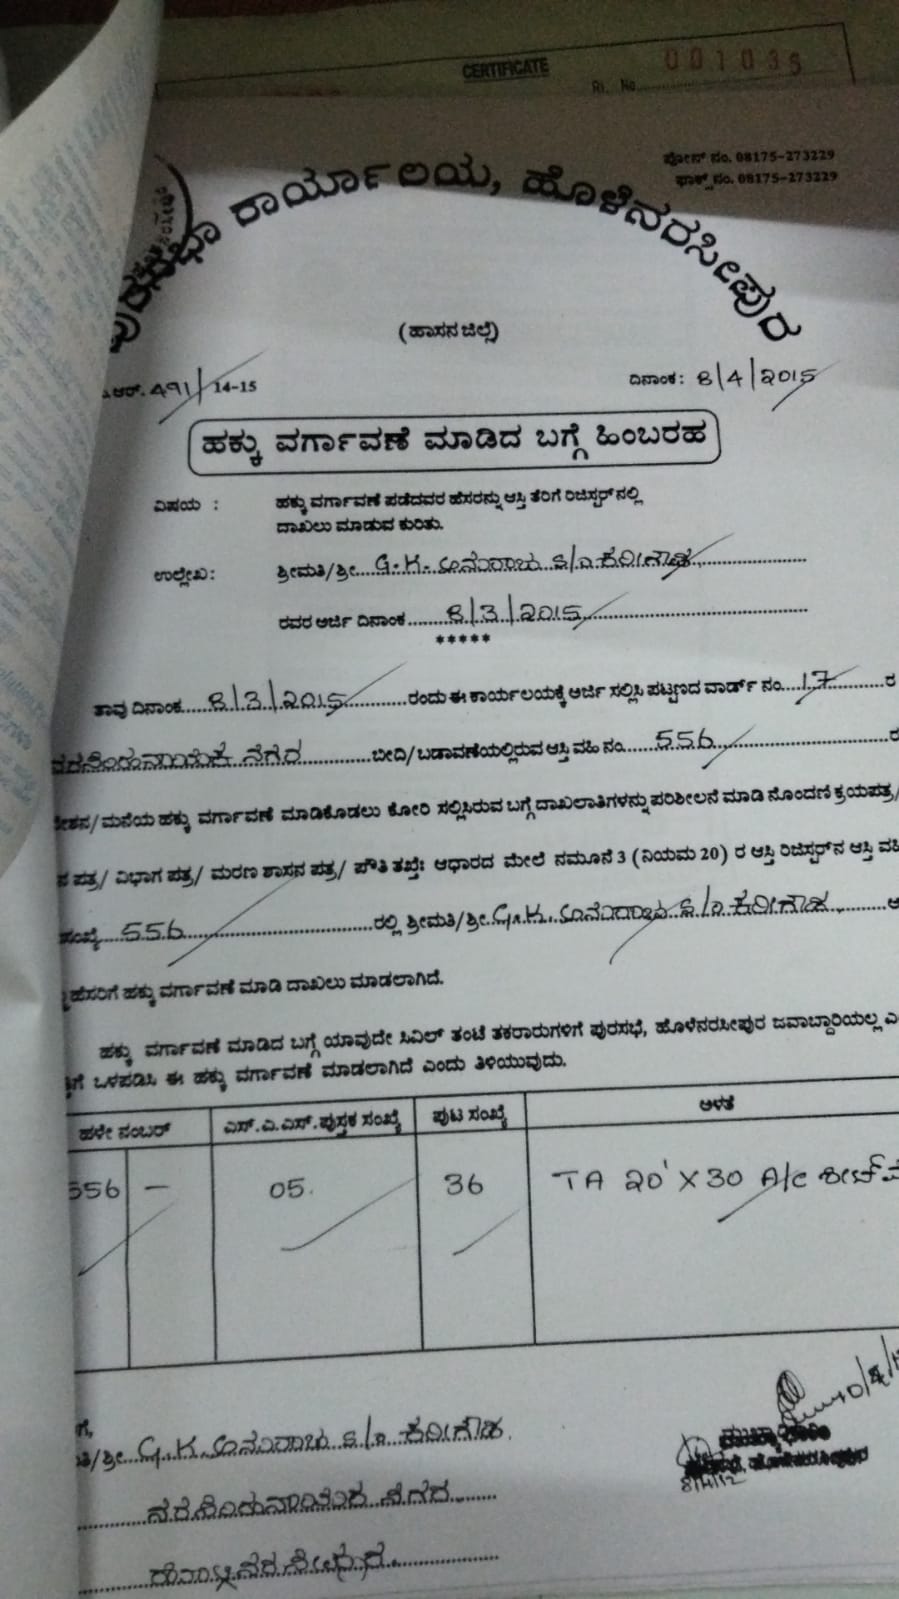 CERTIFICATE
001035
Rl. No.
ಪುರಸಭಾ ಕಾರ್ಯಾಲಯ, ಹೊಳೆನರಸೀಪುರ
ಫೋನ್ ನಂ. 08175-273229
ಫ್ಯಾಕ್ಸ್ ನಂ. 08175-273229
(ಹಾಸನ ಜಿಲ್ಲೆ)
ಆರ್. 491/14-15 ದಿನಾಂಕ: 8/4/2015
ಹಕ್ಕು ವರ್ಗಾವಣೆ ಮಾಡಿದ ಬಗ್ಗೆ ಹಿಂಬರಹ
ವಿಷಯ : ಹಕ್ಕು ವರ್ಗಾವಣೆ ಪಡೆದವರ ಹೆಸರನ್ನು ಆಸ್ತಿ ತೆರಿಗೆ ರಿಜಿಸ್ಟರ್‌ನಲ್ಲಿ
ದಾಖಲು ಮಾಡುವ ಕುರಿತು.
ಉಲ್ಲೇಖ: ಶ್ರೀಮತಿ/ಶ್ರೀ G.K. ಆನಂದರಾಜು S/o ಕರೀಗೌಡ
ರವರ ಅರ್ಜಿ ದಿನಾಂಕ 8/3/2015
*****
ತಾವು ದಿನಾಂಕ 8/3/2015 ರಂದು ಈ ಕಾರ್ಯಲಯಕ್ಕೆ ಅರ್ಜಿ ಸಲ್ಲಿಸಿ ಪಟ್ಟಣದ ವಾರ್ಡ್ ನಂ. 17 ರ
ನರಸಿಂಹನಾಯಕ ನಗರ ಬೀದಿ/ಬಡಾವಣೆಯಲ್ಲಿರುವ ಆಸ್ತಿ ವಹಿ ನಂ. 556
/ಮನೆಯ ಹಕ್ಕು ವರ್ಗಾವಣೆ ಮಾಡಿಕೊಡಲು ಕೋರಿ ಸಲ್ಲಿಸಿರುವ ಬಗ್ಗೆ ದಾಖಲಾತಿಗಳನ್ನು ಪರಿಶೀಲನೆ ಮಾಡಿ ನೊಂದಣಿ ಕ್ರಯಪತ್ರ/
ಪತ್ರ/ ವಿಭಾಗ ಪತ್ರ/ ಮರಣ ಶಾಸನ ಪತ್ರ/ ಪೌತಿ ತಖ್ತೆ: ಆಧಾರದ ಮೇಲೆ ನಮೂನೆ 3 (ನಿಯಮ 20) ರ ಆಸ್ತಿ ರಿಜಿಸ್ಟರ್‌ನ ಆಸ್ತಿ ವಹಿ
ಸಂಖ್ಯೆ 556 ರಲ್ಲಿ ಶ್ರೀಮತಿ/ಶ್ರೀ. G.K. ಆನಂದರಾಜು S/o ಕರೀಗೌಡ
ಹೆಸರಿಗೆ ಹಕ್ಕು ವರ್ಗಾವಣೆ ಮಾಡಿ ದಾಖಲು ಮಾಡಲಾಗಿದೆ.
ಹಕ್ಕು ವರ್ಗಾವಣೆ ಮಾಡಿದ ಬಗ್ಗೆ ಯಾವುದೇ ಸಿವಿಲ್ ತಂಟೆ ತಕರಾರುಗಳಿಗೆ ಪುರಸಭೆ, ಹೊಳೆನರಸೀಪುರ ಜವಾಬ್ದಾರಿಯಲ್ಲ
ಒಳಪಡಿಸಿ ಈ ಹಕ್ಕು ವರ್ಗಾವಣೆ ಮಾಡಲಾಗಿದೆ ಎಂದು ತಿಳಿಯುವುದು.
ಹಳೇ ನಂಬರ್ ಎಸ್.ಎ.ಎಸ್.ಪುಸ್ತಕ ಸಂಖ್ಯೆ ಪುಟ ಸಂಖ್ಯೆ ಅಳತೆ
556 — 05. 36 TA 20' X 30 A/c ಶೀಟ್
/ಶ್ರೀ G.K. ಆನಂದರಾಜು S/o ಕರೀಗೌಡ
ನರಸಿಂಹನಾಯಕ ನಗರ
ಹೊಳೆನರಸೀಪುರ.
ಮುಖ್ಯಾಧಿಕಾರಿ
ಪುರಸಭೆ, ಹೊಳೆನರಸೀಪುರ